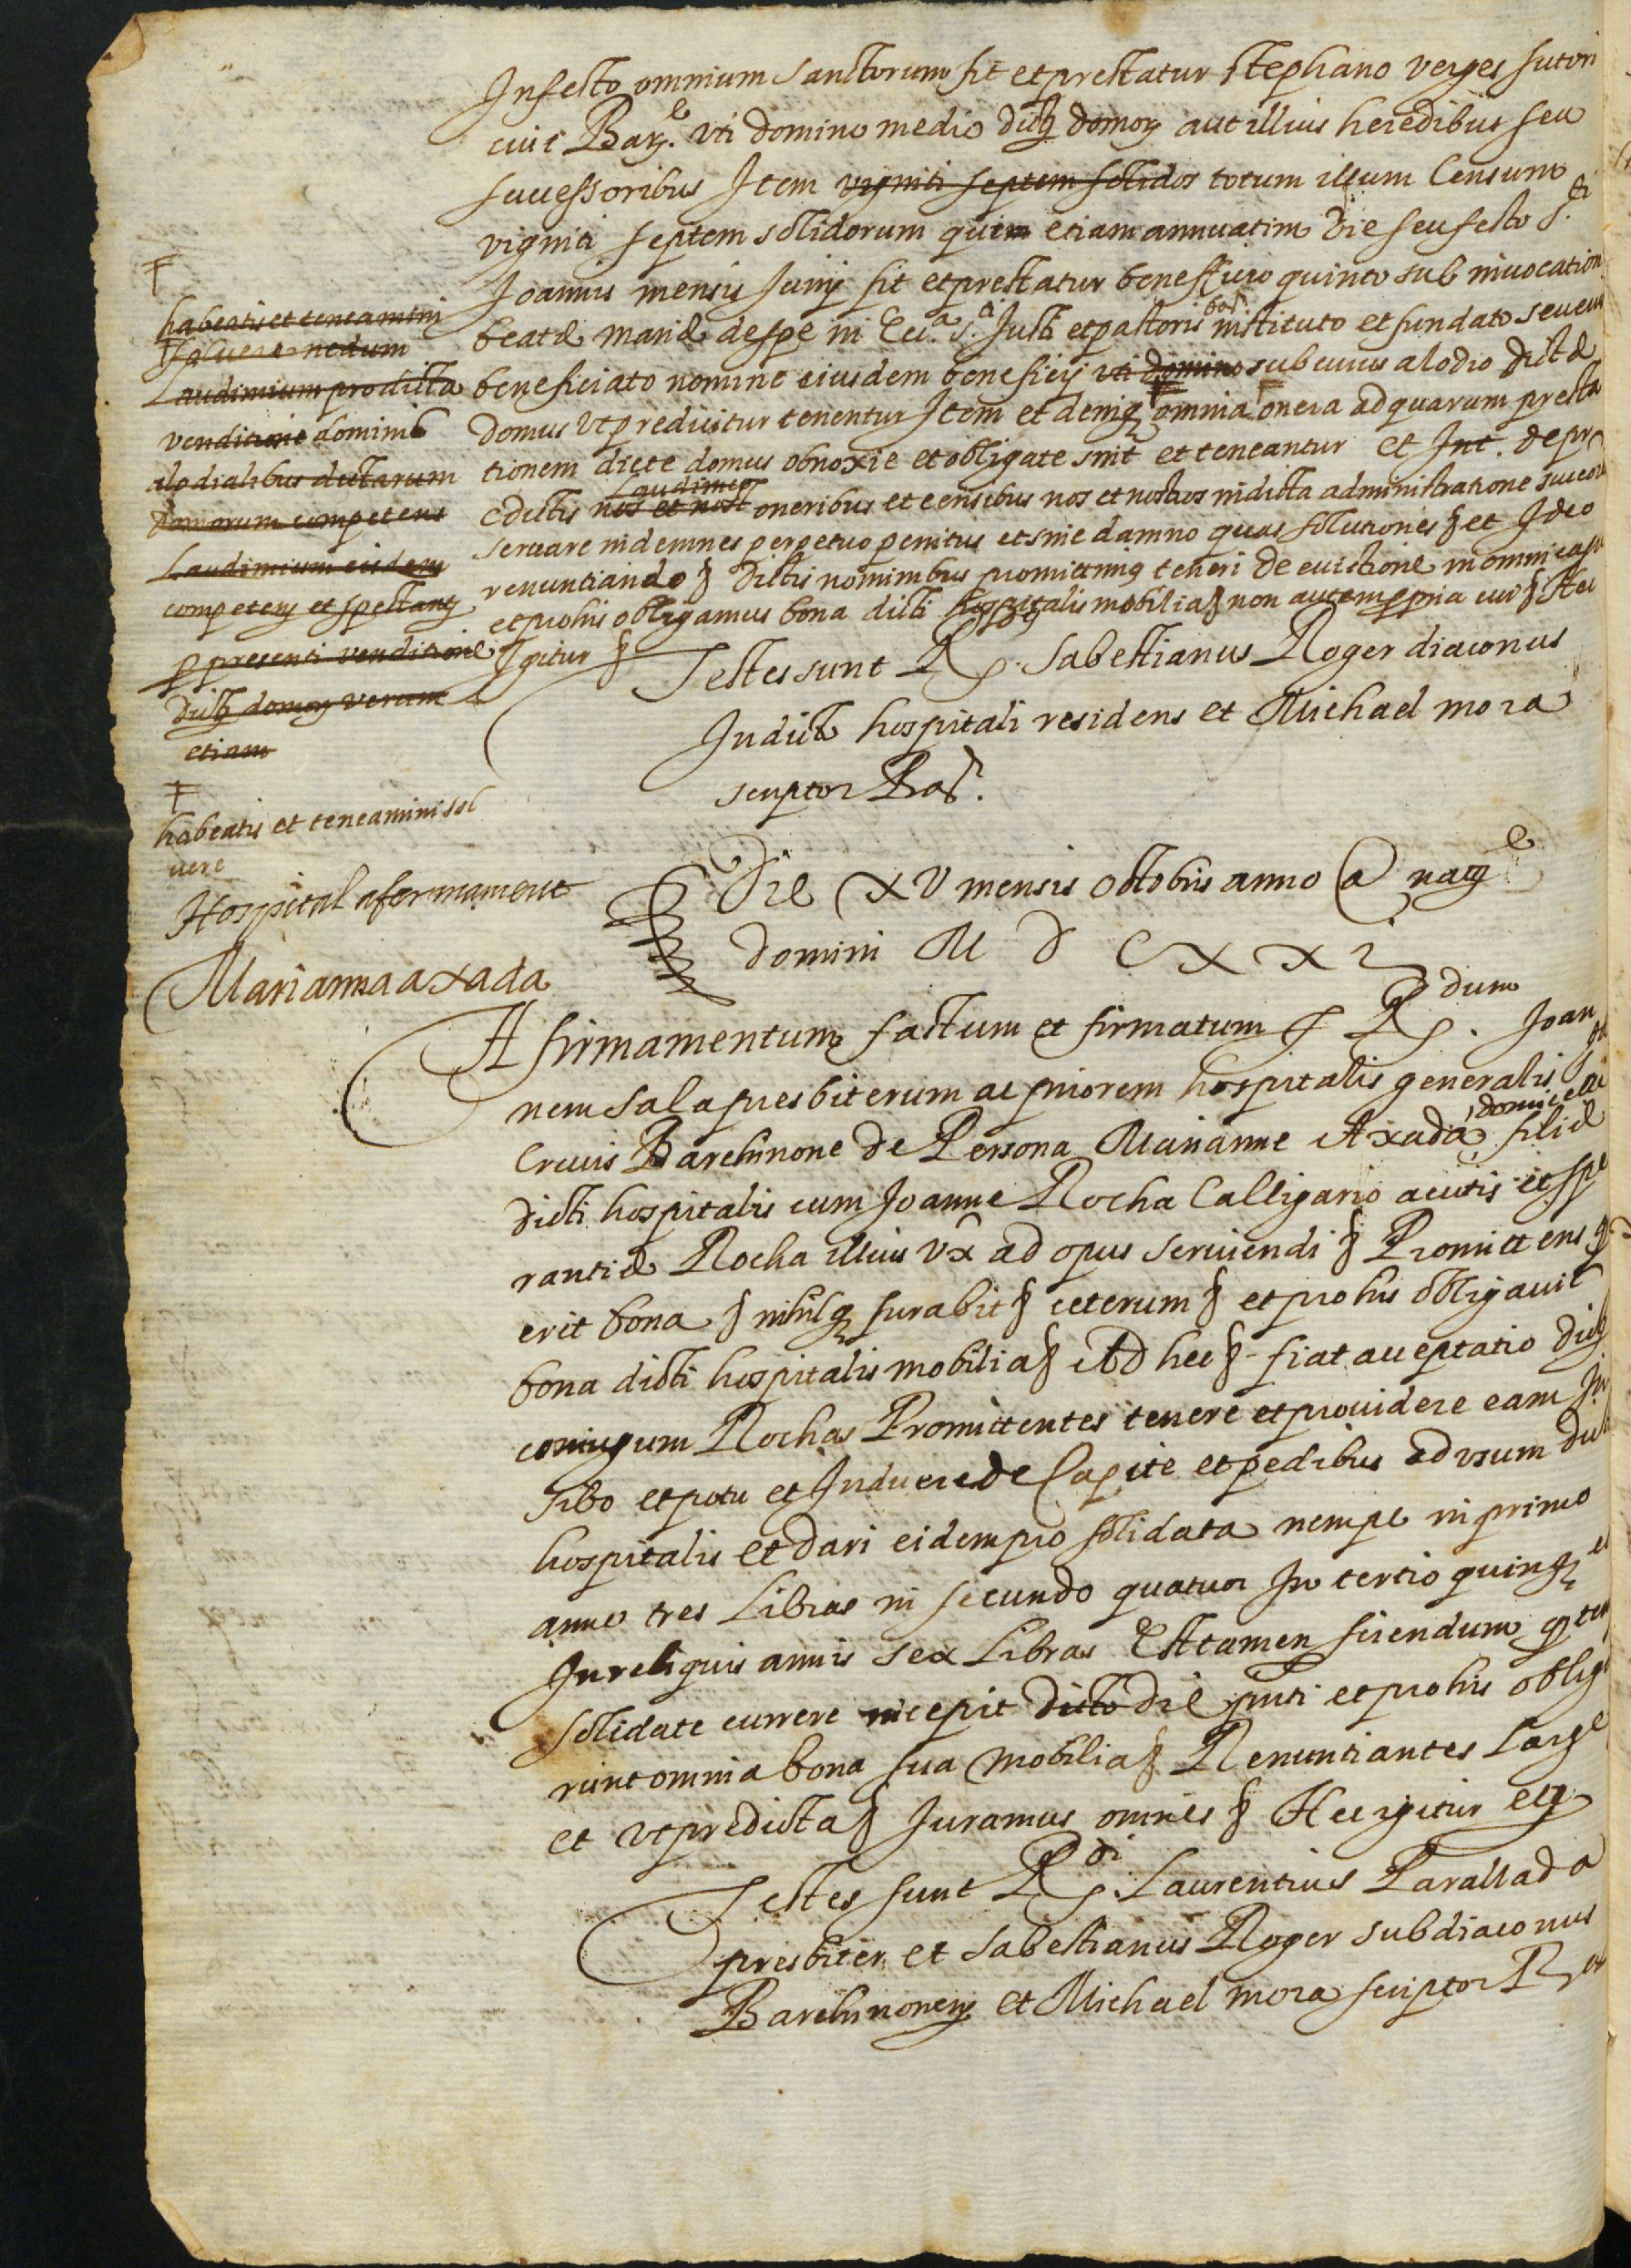 In festo omnium Sanctorum fit et prestatur Stephano verges sutori
civi Barne. uti domino medio dictarum domorum aut illius heredibus seu
successoribus Item viginti septem solidos totum illum Censum
viginti septem solidorum quem etiam annuatim die seu festo Sti
Joannis mensis Junij fit et prestatur beneficio quinto sub invocatione
beatæ mariæ de spe in Ecca. Sti Justi et pastoris instituto et fundato seu eius
beneficiato nomine eiusdem beneficij uti domino sub cuius alodio dictæ
domus ut predicitur tenentur Item et deniq omnia onera ad quarum presta
tionem dicte domus obnoxie et obligate sint et teneantur et Int. de pr
edictis nos et nost oneribus et censibus nos et nostros in dicta administratione succes
Laudimiis
servare indemnes perpetuo penitus et sine damno quas solutiones § et Ideo
renuntiando § dictis nominibus promittimus teneri de evictione in omni casu
et pro his obligamus bona dicti hospitalis mobilia § non autem propria cum § Hec
Igitur §
Testes sunt R. Sabestianus Roger diaconus
In dicto hospitali residens et Michael mora
scriptor Bar.
habeatis et teneamini
solvere nedum
Laudimium pro dicta
venditione dominis
alodialibus dictarum
domorum competens
Laudimium eisdem
competens et spectans
pro presenti venditione
dictarum domorum verum
etiam
habeatis et teneamini sol
vere
Hospital afermament
Marianna axada
Die XV mensis octobris anno a nate
domini M D C X X I
Afirmamentum factum et firmatum per Rdum. Joan
nem Sala presbiterum ac priorem hospitalis generalis Ste
Crucis Barchinone de Persona Marianne Axada domicelle filiæ
dicti hospitalis cum Joanne Rocha Calligario a cutis et spe
rantiæ Rocha illius ux ad opus serviendi § Promittens q
erit bona § nihilq furabit § ceterum § et pro his obligavit
bona dicti hospitalis mobilia § Ad hec § fiat acceptatio dictorum
coniugum Rochas Promittentes tenere et providere eam In
sibo et potu et Induere de Capite et pedibus ad usum dicti
hospitalis et dari eidem pro solidata nempe in primo
anno tres Libras in secundo quatuor In tertio quinq et
In reliquis annis sex Libras Est tamen sciendum q
solidate currere incepit dicto die pnti et pro his oblig
runt omnia bona sua mobilia § Renuntiantes Large
et ut predicta § Juramus omnes § Hec igitur etc
Testes sunt Rdi. Laurentius Parallada
presbiter et Sabestianus Roger subdiaconus
Barchinonens et Michael mora scriptor